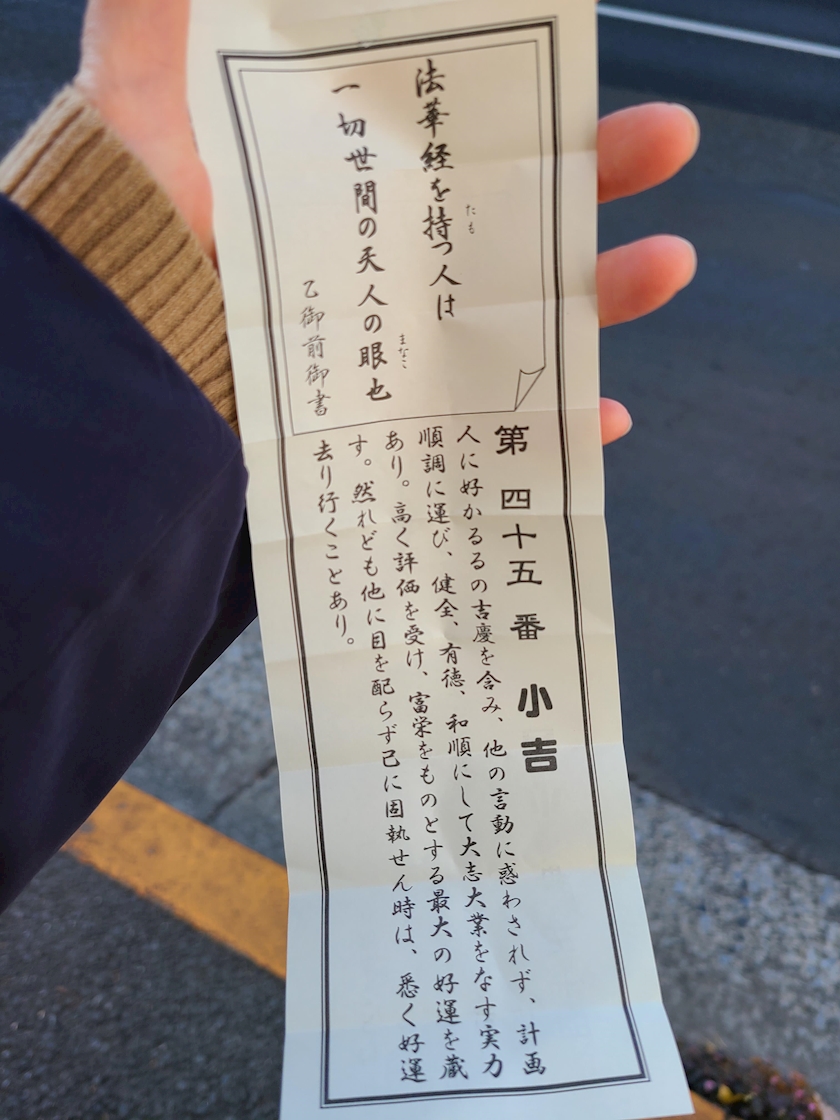 法華経を持つ人は
たも
一切世間の天人の眼也
まなこ
乙御前御書
第四十五番 小吉
人に好かるるの吉慶を含み、他の言動に惑わされず、計画
順調に運び、健全、有徳、和順にして大志大業をなす実力
あり。高く評価を受け、富栄をものとする最大の好運を蔵
す。然れども他に目を配らず己に固執せん時は、悉く好運
去り行くことあり。